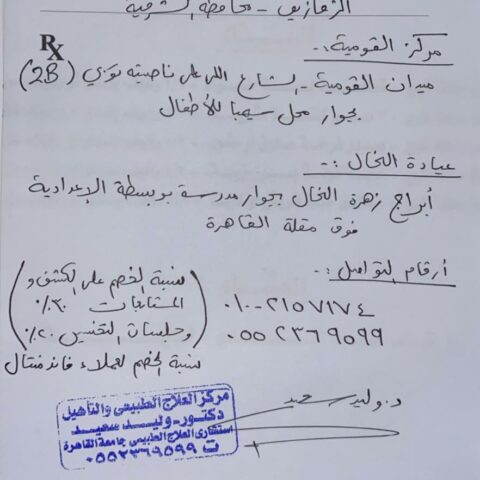 الزقازيق - محافظة الشرقية
Rx
مركز القومية :-
ميدان القومية - الشارع اللى على ناصيته توى (2B)
بجوار محل سيمبا للأطفال
عيادة النحال :-
أبراج زهرة النحال بجوار مدرسة بوبسطة الإعدادية
فوق مقلة القاهرة
أرقام التواصل :-
٠١٠٠٢١٥٧١٧٤
٠٥٥٢٣٦٩٥٩٩
(نسبة الخصم على الكشف و
المتابعات ٣٠٪
وجلسات التخسيس ٢٠٪)
نسبة الخصم لعملاء فاند منتال
د. وليد سعيد
مركز العلاج الطبيعى والتأهيل
دكتور - وليد سعيد
استشارى العلاج الطبيعى جامعة القاهرة
ت ٠٥٥٢٣٦٩٥٩٩